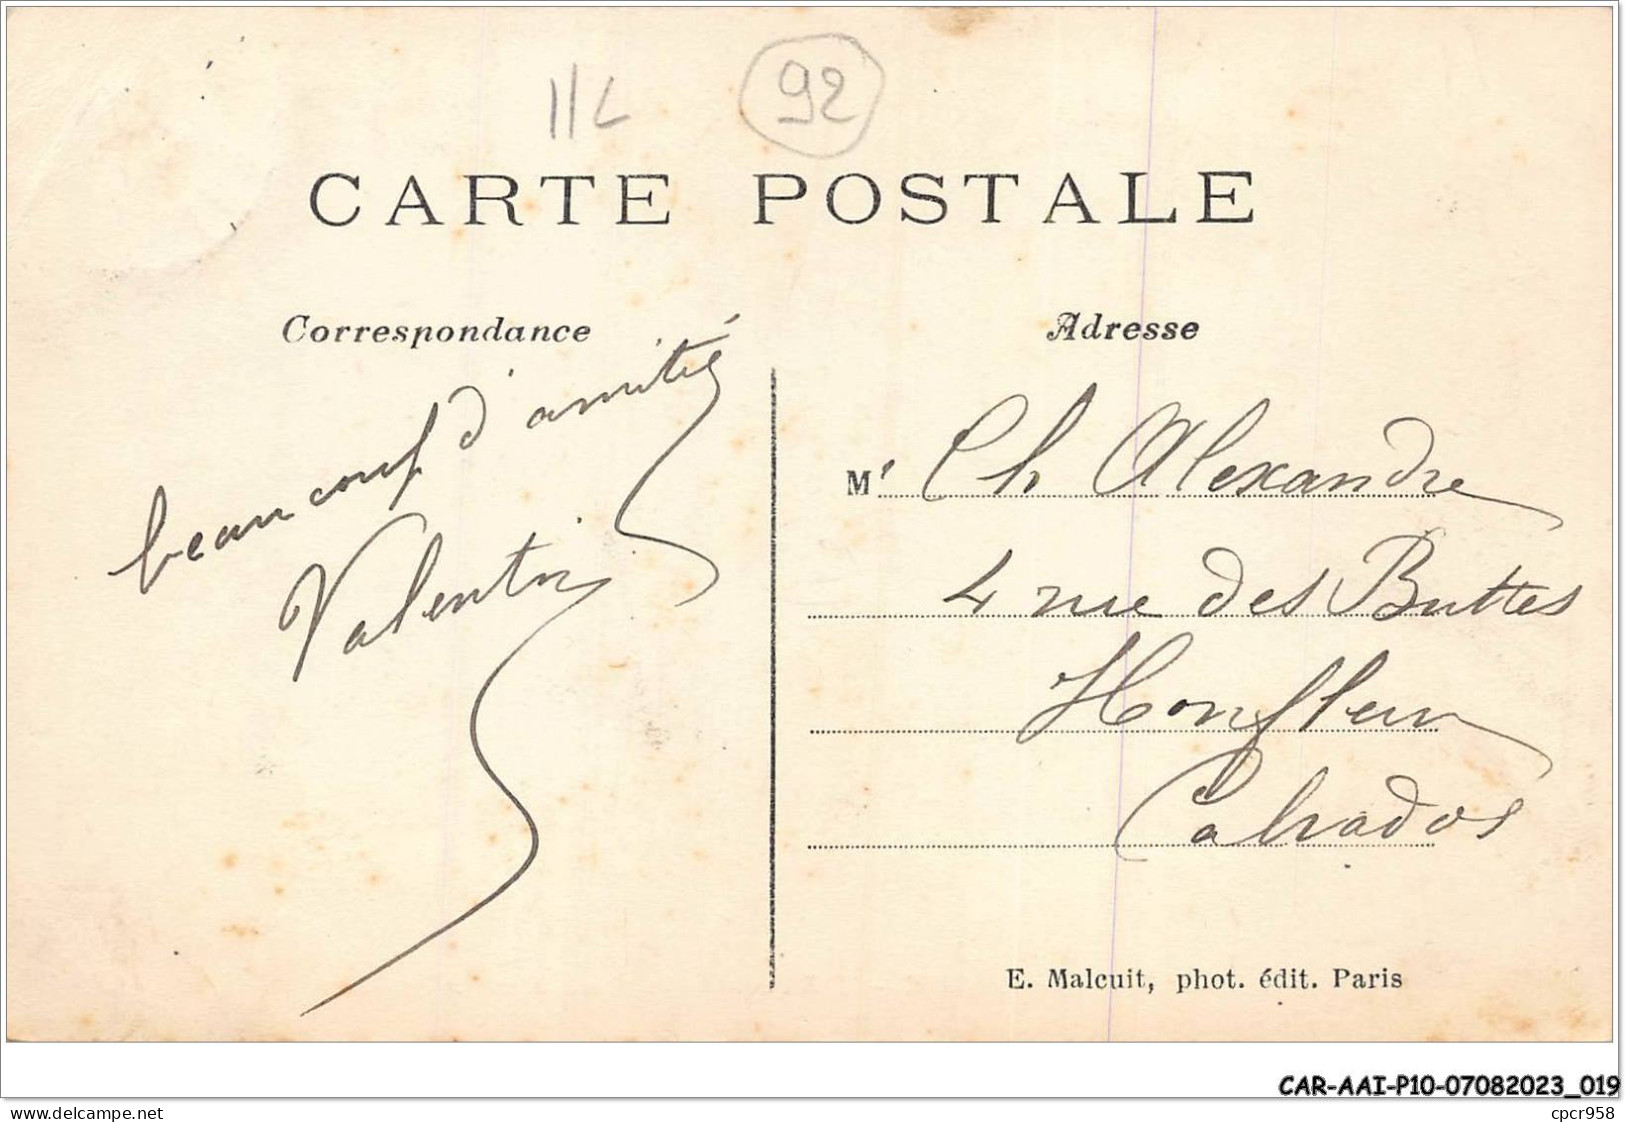 92
CARTE POSTALE
Correspondance
beaucoup d'amitié
Valentin
Adresse
Mr Ch Alexandre
4 rue des Buttes
Honfleur
Calvados
E. Malcuit, phot. édit. Paris
CAR-AAI-P10-07082023_019
www.delcampe.net
cpcr958